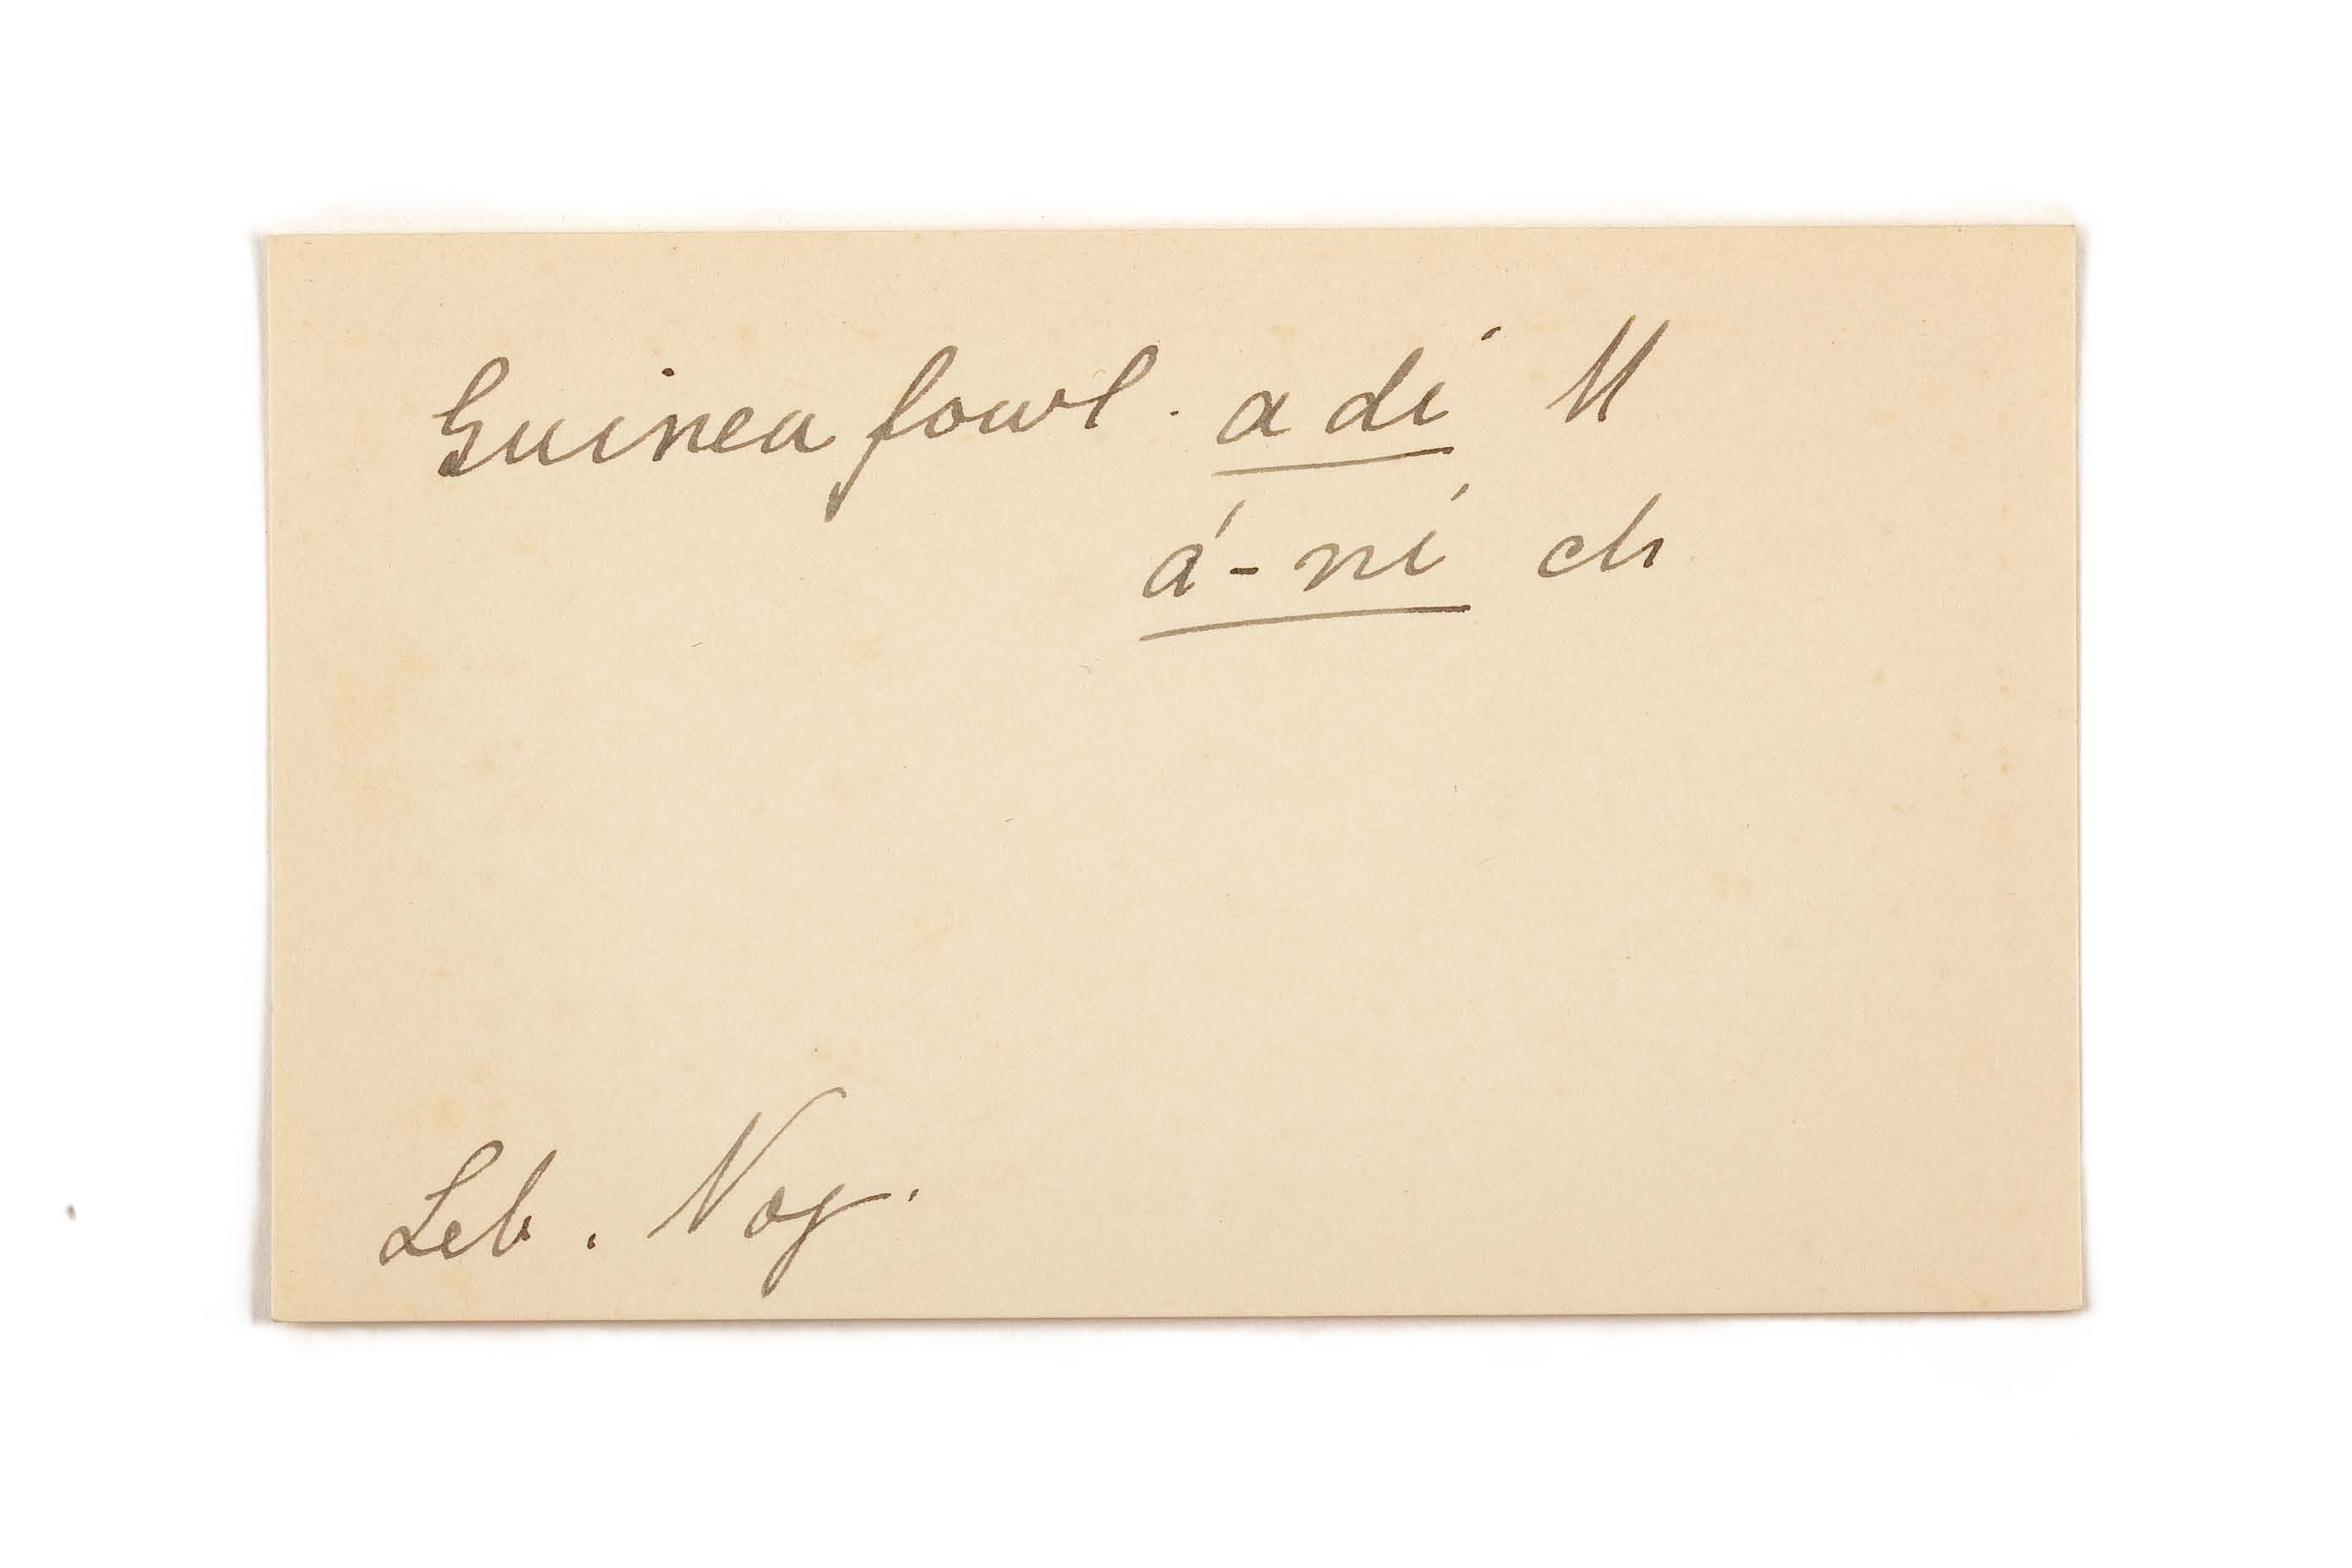 Guinea fowl. a dí M
á-ní ch
Leb. Nog.